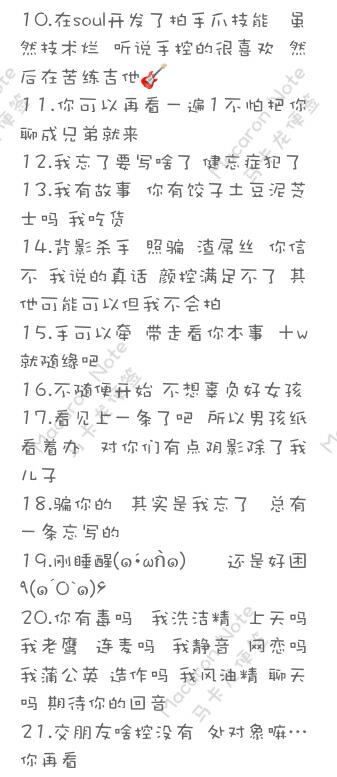 10.在soul开发了拍手爪技能 虽
然技术烂 听说手控的很喜欢 然
后在苦练吉他🎸
11.你可以再看一遍1不怕把你
聊成兄弟就来
12.我忘了要写啥了 健忘症犯了
13.我有故事 你有饺子土豆泥芝
士吗 我吃货
14.背影杀手 照骗 渣屌丝 你信
不 我说的真话 颜控满足不了 其
他可能可以但我不会拍
15.手可以牵 带走看你本事 十w
就随缘吧
16.不随便开始 不想辜负好女孩
17.看见上一条了吧 所以男孩纸
看着办 对你们有点阴影除了我
儿子
18.骗你的 其实是我忘了 总有
一条忘写的
19.刚睡醒(๑•́ωก̀๑) 还是好困
٩(๑´0`๑)۶
20.你有毒吗 我洗洁精 上天吗
我老鹰 连麦吗 我静音 网恋吗
我蒲公英 造作吗 我风油精 聊天
吗 期待你的回音
21.交朋友啥控没有 处对象嘛…
你再看
Macaron Note
马卡龙便签